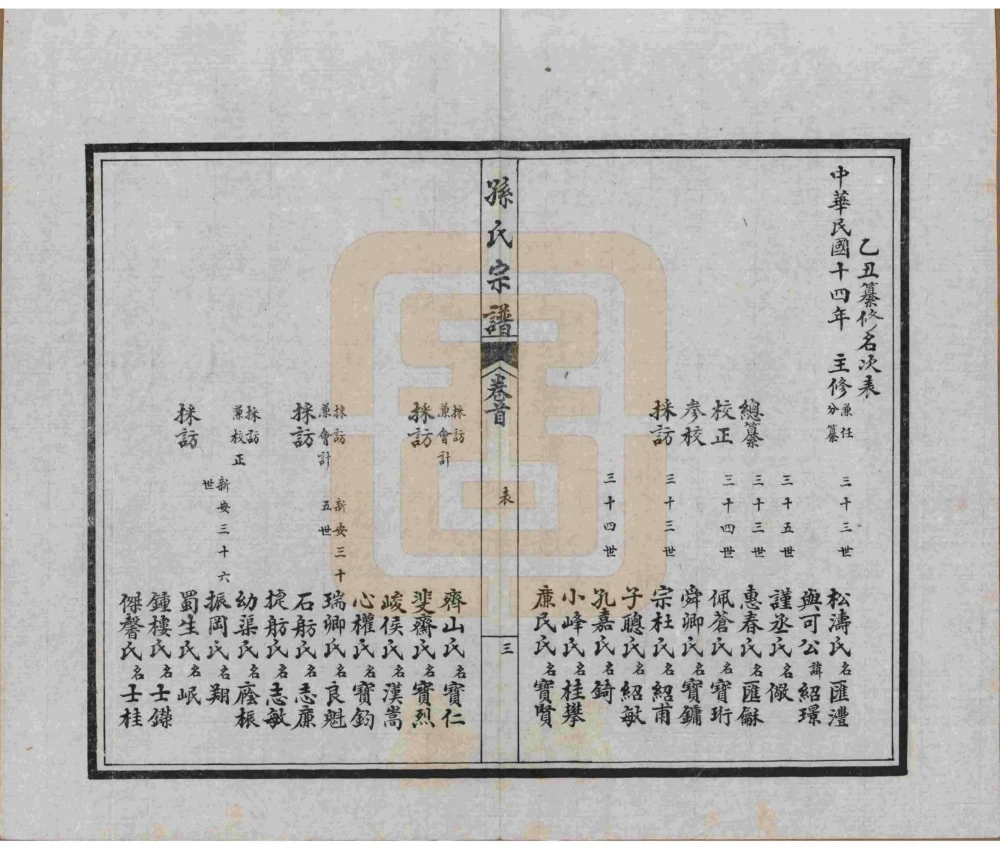 乙丑纂修名次表
中華民國十四年 主修兼任分纂 三十三世 松濤氏名匯澧
與可公諱紹璟
三十五世 謹丞氏名俶
總纂 三十三世 惠春氏名匯龢
校正 三十四世 佩蒼氏名寶珩
參校 舜卿氏名寶鏞
採訪 三十三世 宗杜氏名紹甫
子聰氏名紹敏
三十四世 孔嘉氏名錡
小峰氏名桂攀
廉民氏名寶賢
孫氏宗譜 卷首 表 三
齊山氏名寶仁
採訪 採訪兼會計 斐齋氏名寶烈
峻侯氏名漢嵩
心權氏名寶鈞
採訪兼會計 新安三十五世 瑞卿氏名良魁
採訪 石舫氏名志廉
掟舫氏名志敏
採訪兼校正 幼渠氏名蔭振
新安三十六世 振岡氏名翔
採訪 蜀生氏名岷
鍾樓氏名士鏷
傑馨氏名士桂